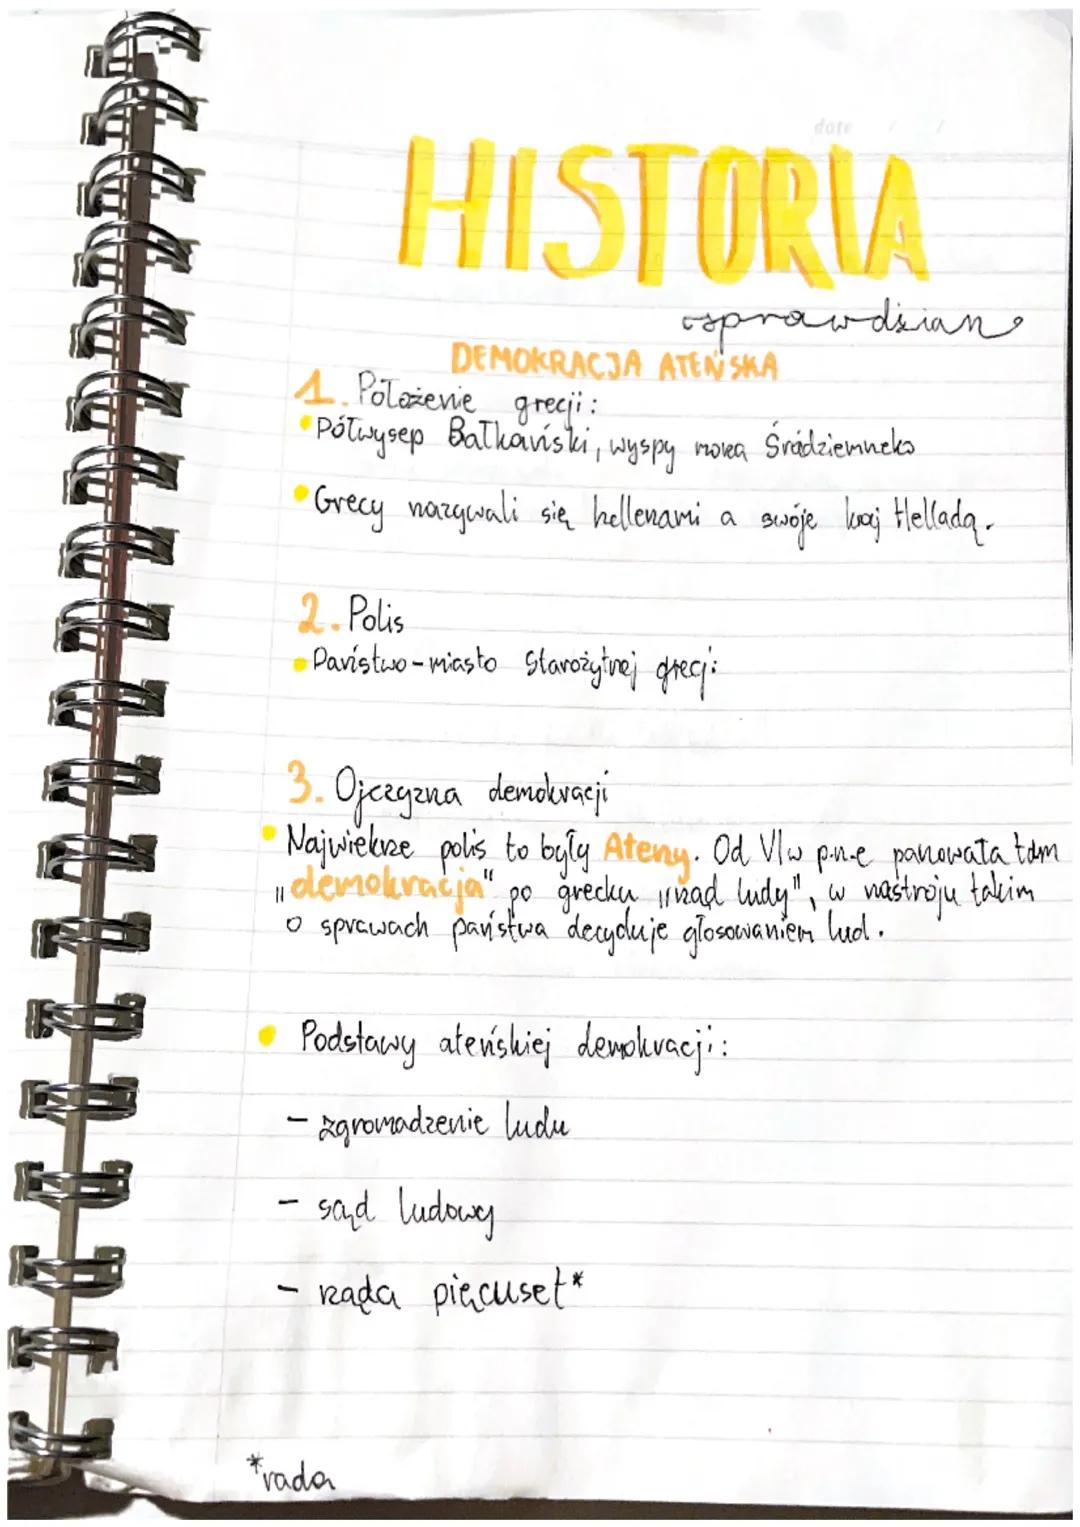 date / /
HISTORIA
sprawdzian
DEMOKRACJA ATEŃSKA
1. Położenie grecji:
Półwysep Bałkański, wyspy morza Śródziemneko
Grecy nazywali się hellenami a swóje kraj Helladą.
2. Polis
Państwo-miasto Starożytnej grecji
3. Ojczyzna demokracji
Najwiekrze polis to były Ateny. Od VIw p.n.e panowała tam
„demokracja" po grecku „rząd ludy", w nastroju takim
o sprawach państwa decyduje głosowaniem lud.
Podstawy ateńskiej demokracji:
- zgromadzenie ludu
- sąd ludowy
- rząda pięcuset*
*rada